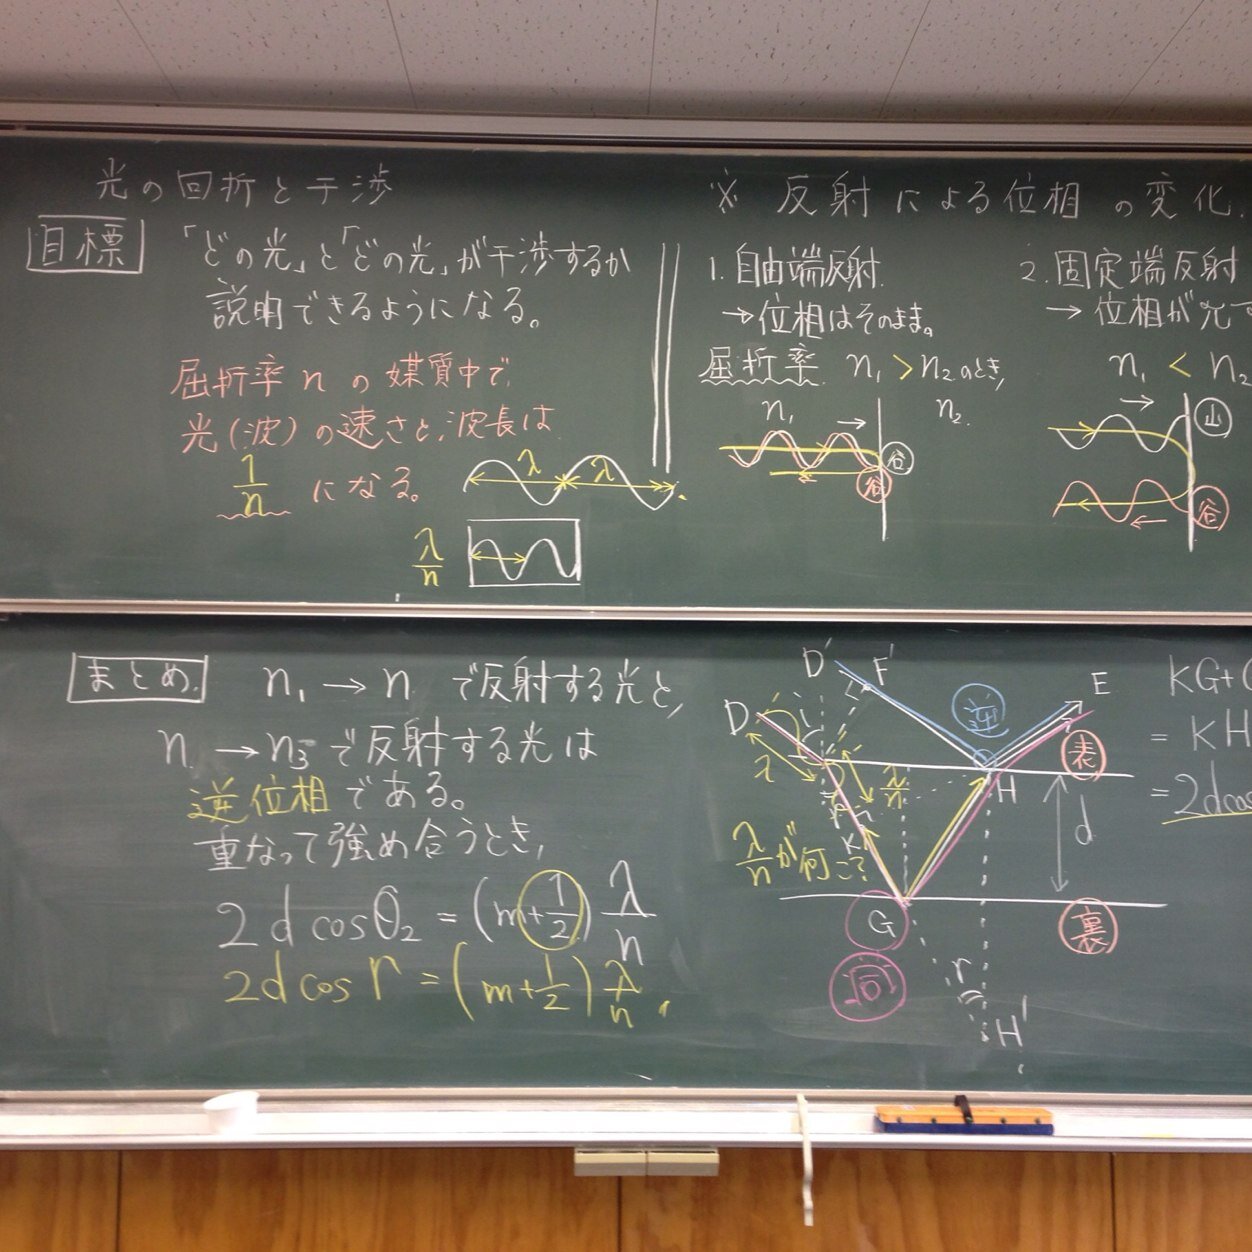 光の回折と干渉
目標
「どの光」と「どの光」が干渉するか
説明できるようになる。
屈折率 n の 媒質中で
光(波)の速さと、波長は
1/n になる。
λ λ
λ/n
※ 反射による位相の変化
1. 自由端反射
→位相はそのまま。
屈折率 n₁ > n₂のとき,
n₁ n₂
谷
谷
2. 固定端反射
→ 位相が
n₁ < n₂
山
谷
まとめ
n₁ → n で反射する光と,
n → n₃ で反射する光は
逆位相である。
重なって強め合うとき,
2d cosθ₂ = (m+1/2) λ/n
2d cos r = (m+1/2) λ/n
D' F' 逆 E
D
λ λ/n H 表
K d
λ/nが何こ?
G 裏
同
r
H'
KG+
= KH
= 2dcos